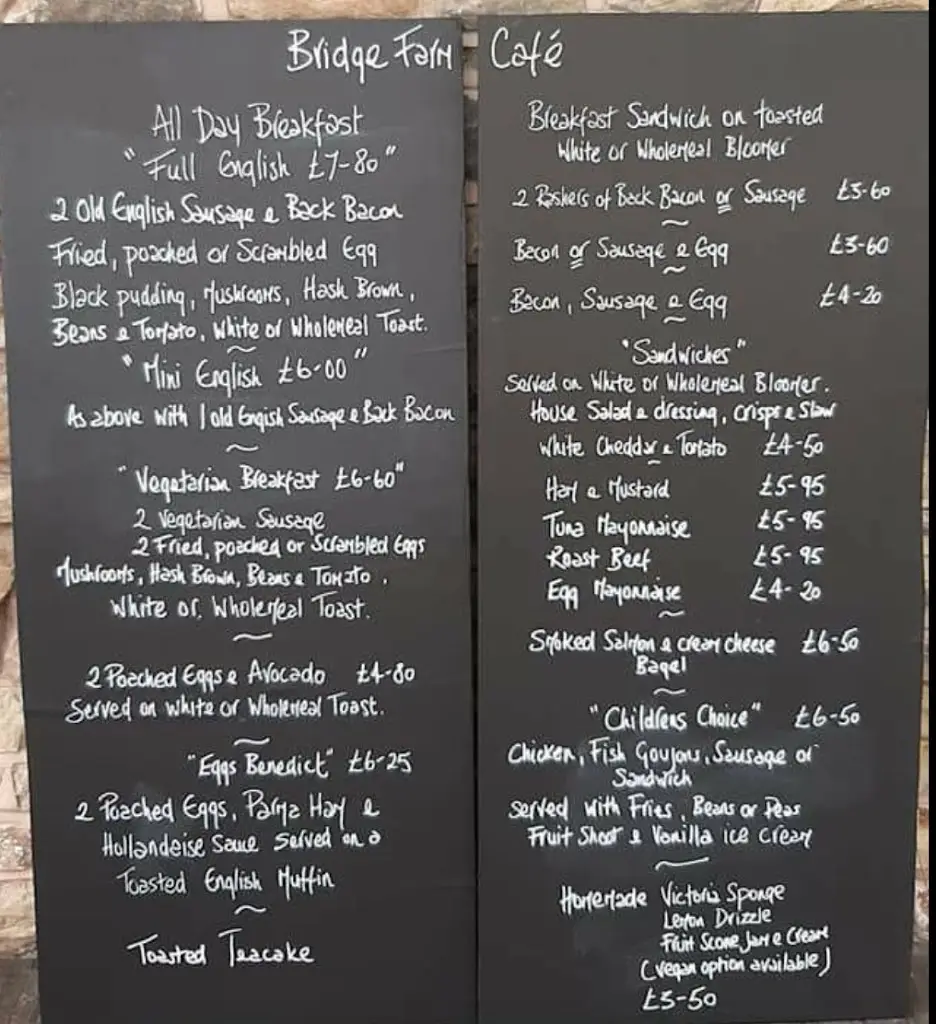 Bridge Farm Café
All Day Breakfast
"Full English £7-80"
2 Old English Sausage & Back Bacon
Fried, poached or Scrambled Egg
Black pudding, Mushrooms, Hash Brown,
Beans & Tomato, White or Wholemeal Toast.
~
"Mini English £6-00"
As above with 1 old Engish Sausage & Back Bacon
~
"Vegetarian Breakfast £6-60"
2 Vegetarian Sausage
2 Fried, poached or Scrambled Eggs
Mushrooms, Hash Brown, Beans & Tomato,
White or, Wholemeal Toast.
~
2 Poached Eggs & Avocado £4-80
Served on white or Wholemeal Toast.
~
"Eggs Benedict" £6-25
2 Poached Eggs, Parma Ham &
Hollandeise Sauce Served on a
Toasted English Muffin
~
Toasted Teacake
Breakfast Sandwich on toasted
White or Wholemeal Bloomer
2 Rashers of Back Bacon or Sausage £3-60
~
Bacon or Sausage & Egg £3-60
~
Bacon, Sausage & Egg £4-20
~
"Sandwiches"
Served on White or Wholemeal Bloomer.
House Salad & dressing, crisps & Slaw
White Cheddar & Tomato £4-50
~
Ham & Mustard £5-95
Tuna Mayonnaise £5-95
Roast Beef £5-95
Egg Mayonnaise £4-20
~
Smoked Salmon & cream cheese £6-50
Bagel
~
"Childrens Choice" £6-50
Chicken, Fish Goujons, Sausage or
Sandwich
served with Fries, Beans or Peas
Fruit Shoot & Vanilla ice cream
~
Homemade Victoria Sponge
Lemon Drizzle
Fruit Scone Jam & Cream
(vegan option available)
£3-50